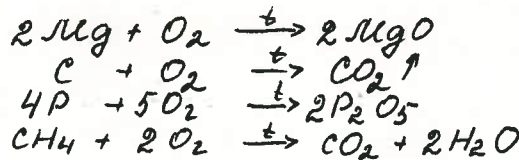 2Mg + O₂ →t 2MgO
C + O₂ →t CO₂↑
4P + 5O₂ →t 2P₂O₅
CH₄ + 2O₂ →t CO₂ + 2H₂O